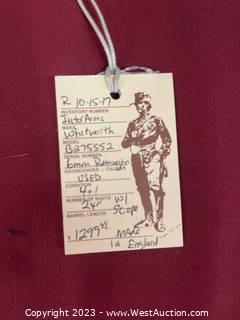 R 10-15-17
INVENTORY NUMBER
InterArms
MAKE
Whitworth
MODEL
B275552
SERIAL NUMBER
6mm Remington
GAUGE/CHOKE - CALIBER
USED
CONDITION
4+1
NUMBER OF SHOTS W/
24" Scope
BARREL LENGTH
$ 1299.95 MADE
in England
Copyright 2023 - WestAuction.com